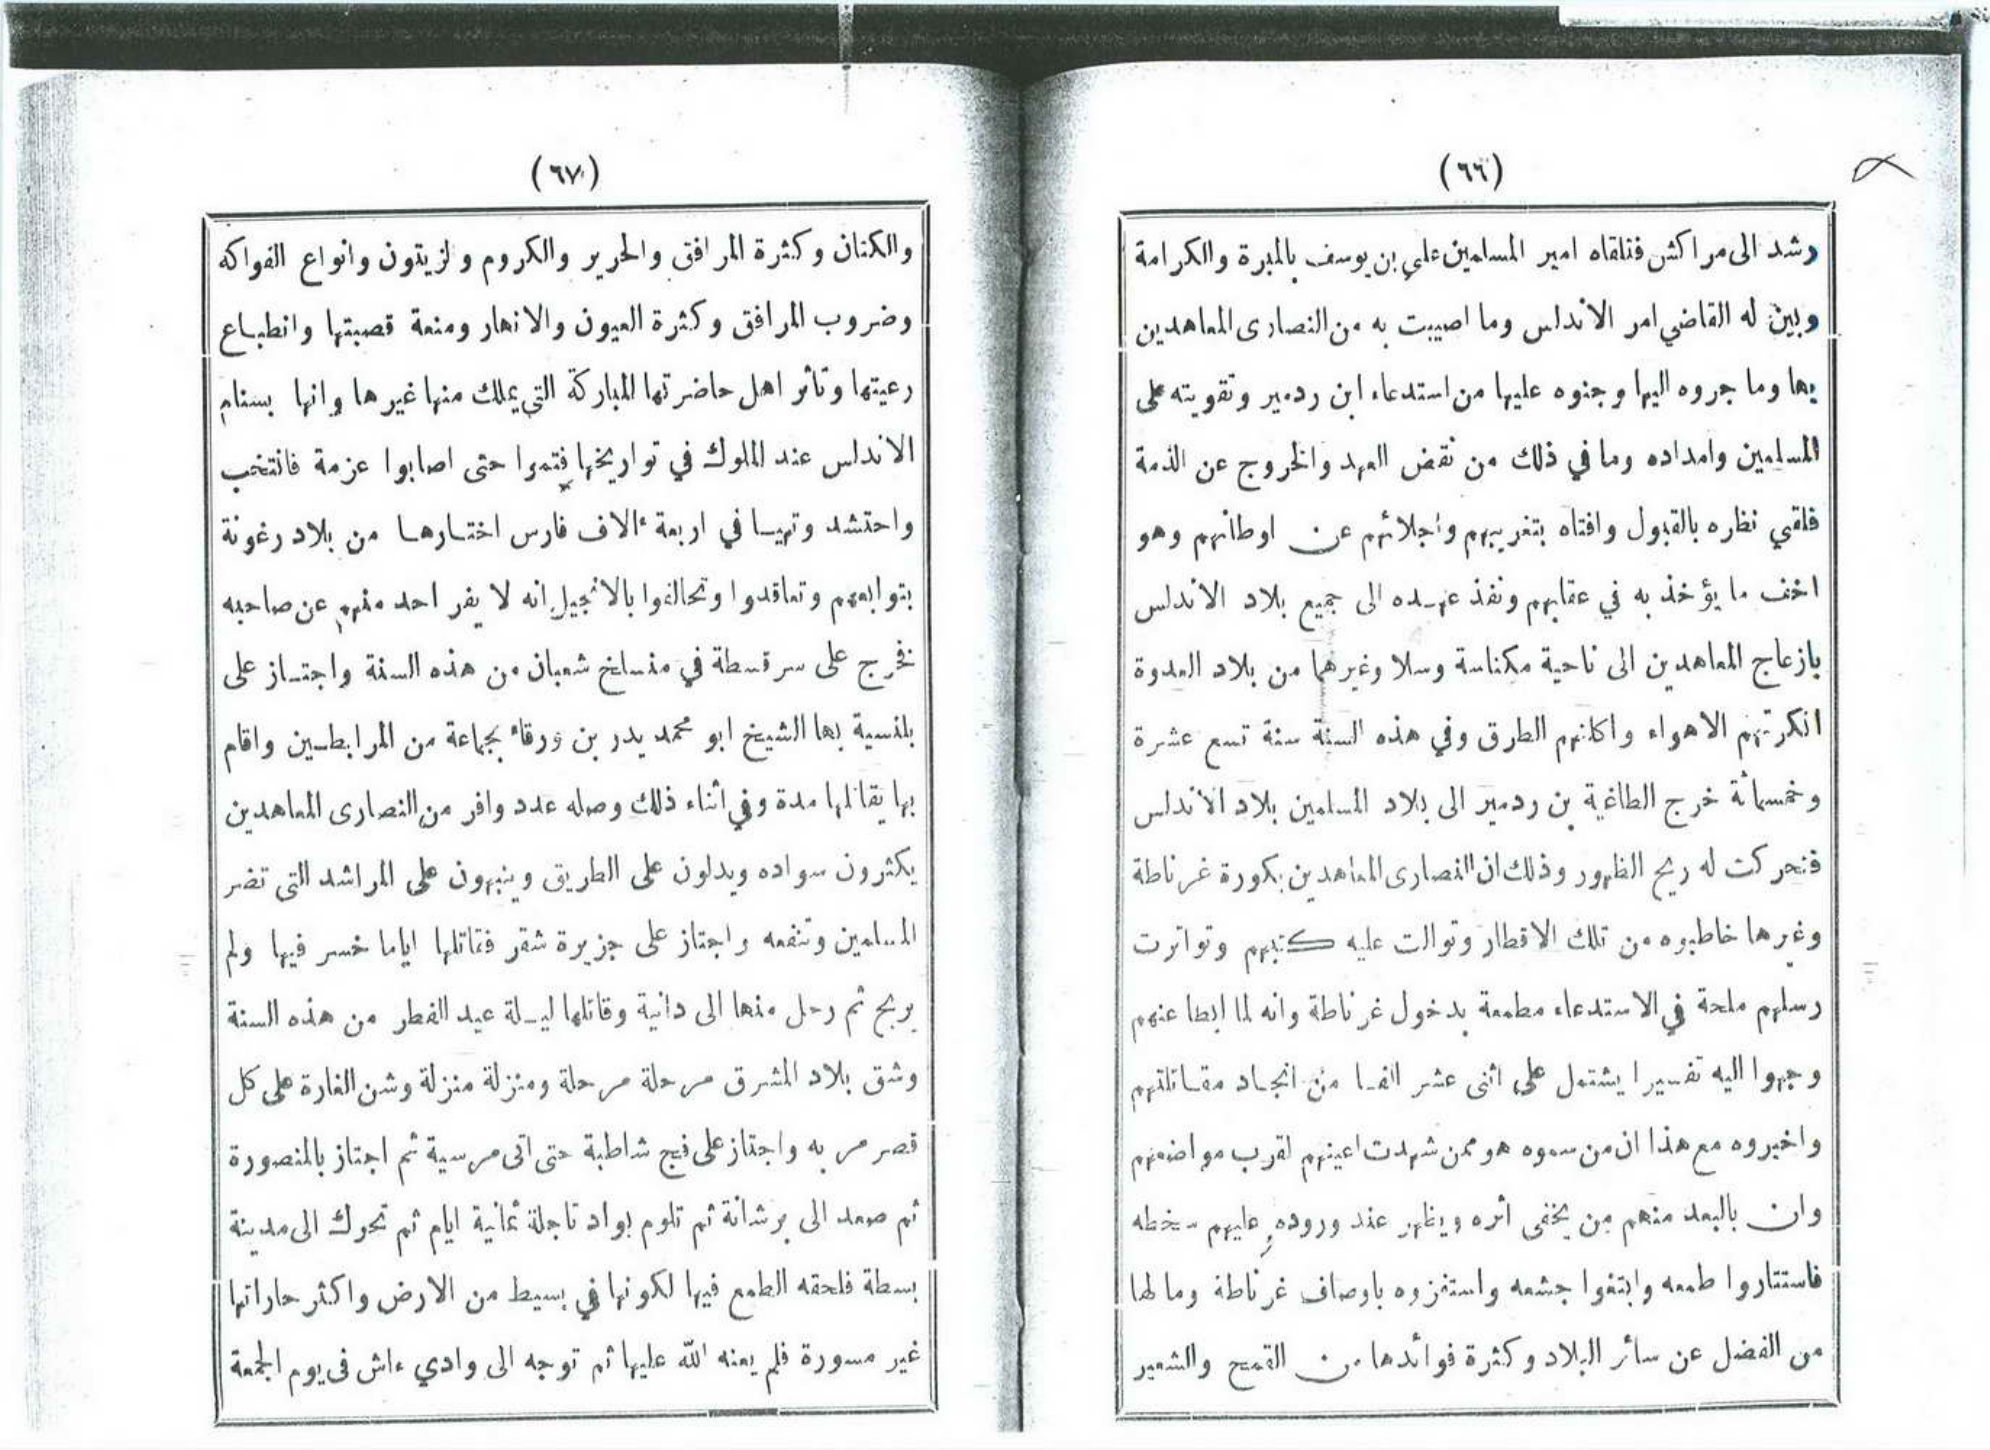 (٦٦)
رشد الى مراكش فتلقاه امير المسلمين علي بن يوسف بالمبرة والكرامة
وبين له القاضي امر الاندلس وما اصيبت به من النصارى المعاهدين
بها وما جروه اليها وجنوه عليها من استدعاء ابن ردمير وتقويته على
المسلمين وامداده وما في ذلك من نقض العهد والخروج عن الذمة
فلقي نظاره بالقبول وافتاه بتغريبهم واجلائهم عن اوطانهم وهو
اخف ما يؤخذ به في عقابهم ونفذ عهده الى جميع بلاد الاندلس
بازعاج المعاهدين الى ناحية مكناسة وسلا وغيرهما من بلاد العدوة
انكرتهم الاهواء واكلتهم الطرق وفي هذه السنة سنة تسع عشرة
وخمسمائة خرج الطاغية بن ردمير الى بلاد المسلمين بلاد الاندلس
فتحركت له ريح الظهور وذلك ان النصارى المعاهدين بكورة غرناطة
وغيرها خاطبوه من تلك الاقطار وتوالت عليه كتبهم وتواترت
رسلهم ملحة في الاستدعاء مطمعة بدخول غرناطة وانه لما ابطا عنهم
وجهوا اليه تفسيرا يشتمل على اثنى عشر الفا من انجاد مقاتلتهم
واخبروه مع هذا ان من سموه هو ممن شهدت اعينهم لقرب مواضعهم
وان بالبعد منهم من يخفى أثره ويظهر عند وروده عليهم سخطه
فاستثاروا طمعه وابتغوا جشعه واستفزوه باوصاف غرناطة وما لها
من الفضل عن سائر البلاد وكثرة فوائدها من القمح والشعير
(٦٧)
والكتان وكثرة المرافق والحرير والكروم ولزيتون وانواع الفواكه
وضروب المرافق وكثرة العيون والانهار ومنعة قصبتها وانطباع
رعيتها وتأثر اهل حاضرتها المباركة التي يملك منها غيرها وانها بسنام
الاندلس عند الملوك في تواريخها فتمروا حتى اصابوا عزمة فانتخب
واحتشد وتهيا في اربعة ءالاف فارس اختارها من بلاد رغونة
بتوابعهم وتعاقدوا وتحالفوا بالانجيل انه لا يفر احد منهم عن صاحبه
فخرج على سرقسطة في منسلخ شعبان من هذه السنة واجتاز على
بلنسية بها الشيخ ابو محمد يدر بن ورقاء بجماعة من المرابطين واقام
بها يقاتلها مدة وفي أثناء ذلك وصله عدد وافر من النصارى المعاهدين
يكثرون سواده ويدلون على الطريق وينبهون على المراشد التي تضر
المسلمين وتنفعه واجتاز على جزيرة شقر فقاتلها اياما خسر فيها ولم
يربح ثم رحل منها الى دانية وقاتلها ليلة عيد الفطر من هذه السنة
وشق بلاد المشرق مرحلة مرحلة ومنزلة منزلة وشن الغارة على كل
قصر مر به واجتاز على فج شاطبة حتى اتى مرسية ثم اجتاز بالمنصورة
ثم صعد الى برشانة ثم تلوم بواد تاجلة ثمانية ايام ثم تحرك الى مدينة
بسطة فلحقه الطمع فيها لكونها في بسيط من الارض واكثر حاراتها
غير مسورة فلم يعنه الله عليها ثم توجه الى وادي ءاش في يوم الجمعة